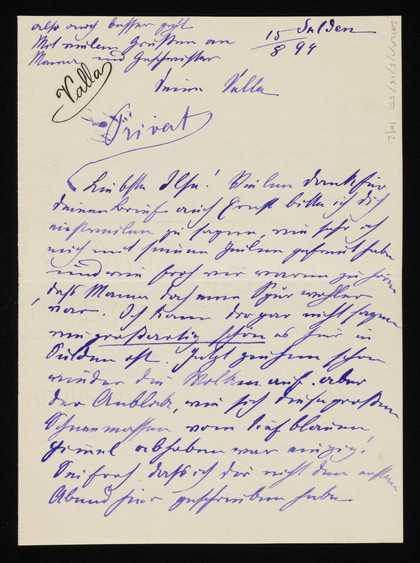 also noch besser geht
Mit vielen Grüßen an
Mama und Geschwister
Deine Valla
Sulden
15/8 94
Valla
Privat
Liebste Ilse! Vielen Dank für
deinen Brief auch Ernst bitte ich dich
zu sagen, wie sehr ich
mich mit seinen Zeilen gefreut habe
und wie froh wir waren zu hören
daß Mama doch eine Spur wohler
war. Ich kann dir gar nicht sagen
wie großartig schön es hier in
Sulden ist. Jetzt ziehen schon
wieder die Wolken auf. aber
der Anblick, wie sich diese großen
Schneemassen vom tiefblauen
Himmel abhoben war einzig!
Sei froh daß ich dir nicht den ersten
Abend hier geschrieben habe.